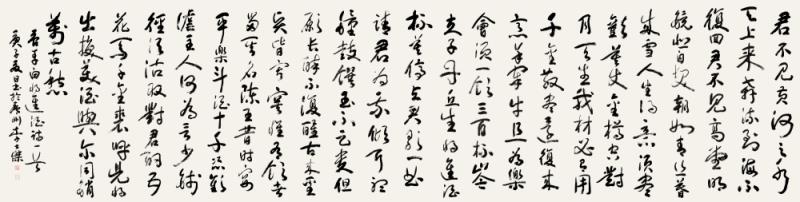 君不見黃河之水
天上來奔流到海不
復回君不見高堂明
鏡悲白髮朝如青絲暮
成雪人生得意須盡
歡莫使金樽空對
月天生我材必有用
千金散盡還復來
烹羊宰牛且為樂
會須一飲三百杯岑
夫子丹丘生將進酒
杯莫停與君歌一曲
請君為我傾耳聽
鐘鼓饌玉不足貴但
願長醉不復醒古來聖
賢皆寂寞惟有飲者
留其名陳王昔時宴
平樂斗酒十千恣歡
謔主人何為言少錢
徑須沽取對君酌五
花馬千金裘呼兒將
出換美酒與爾同銷
萬古愁
李白將進酒詩一首
庚子夏日書於廣州